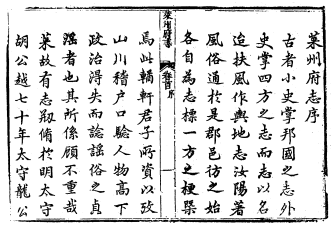 萊州府志序
古者小史掌邦國之志外
史掌四方之志而志以名
迨扶風作輿地志汝陽著
風俗通於是郡邑彷之始
各自為志標一方之梗槩
萊州府志
卷首
序
焉此輶軒君子所資以攷
山川稽户口驗人物高下
政治得失而論謡俗之貞
滛者也其所係顧不重哉
萊故有志剏脩於明太守
胡公越七十年太守龍公